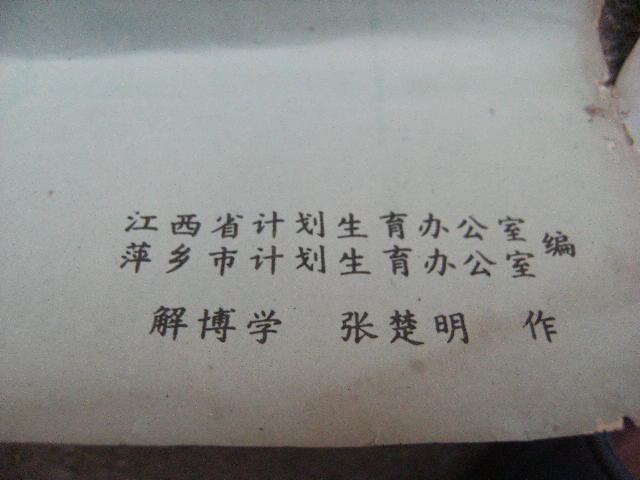 江西省计划生育办公室
萍乡市计划生育办公室 编
解博学 张楚明 作